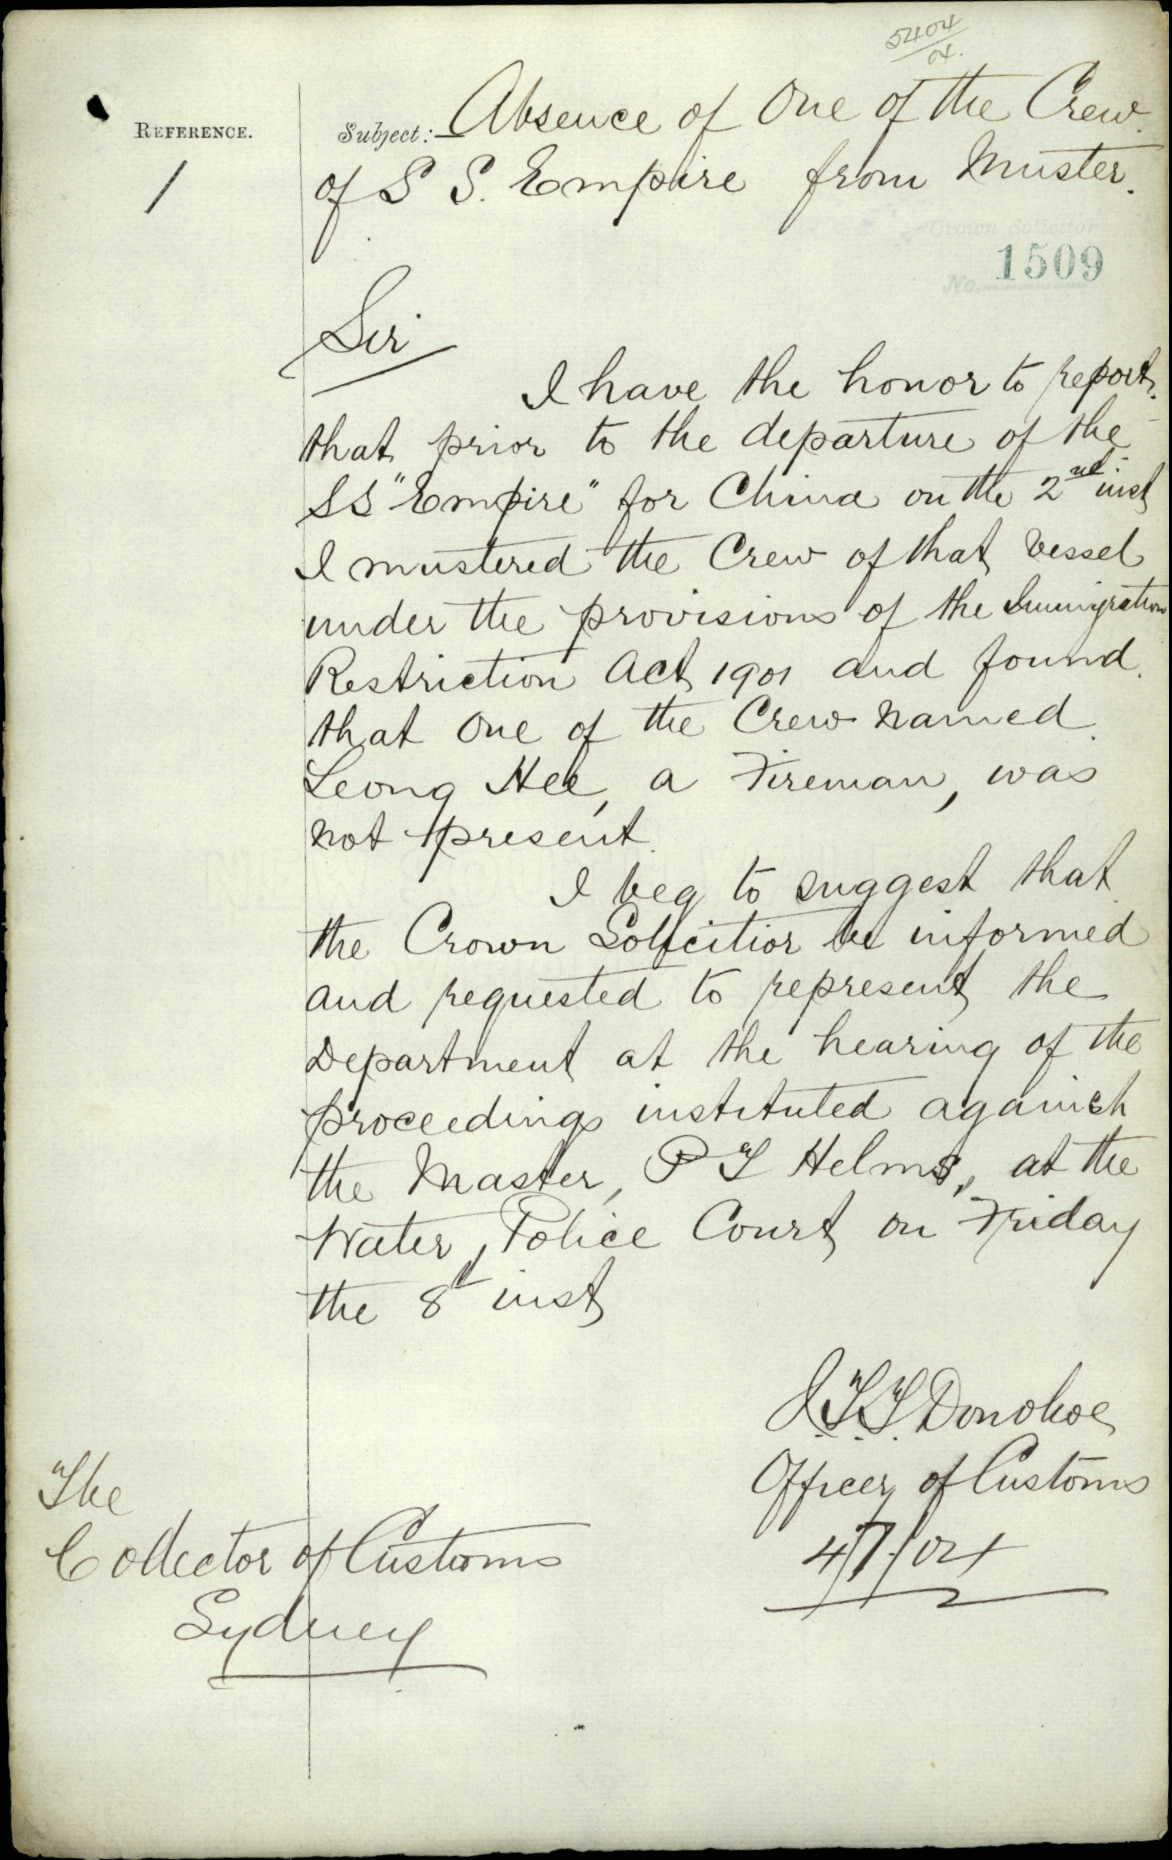 5404/04.
REFERENCE.
1
Subject:- Absence of One of the Crew
of S S. Empire from Muster.
Crown Solicitor
No. 1509
Sir
I have the honor to report
that prior to the departure of the
SS "Empire" for China on the 2nd inst
I mustered the Crew of that vessel
under the provisions of the Immigration
Restriction Act 1901 and found
that One of the Crew named
Leong Hee, a Fireman, was
not present.
I beg to suggest that
the Crown Solicitior be informed
and requested to represent the
Department at the hearing of the
proceedings instituted against
the Master, P T Helms, at the
Water Police Court on Friday
the 8t inst
J.T.T. Donohoe
Officer of Customs
4/7/04
The
Collector of Customs
Sydney